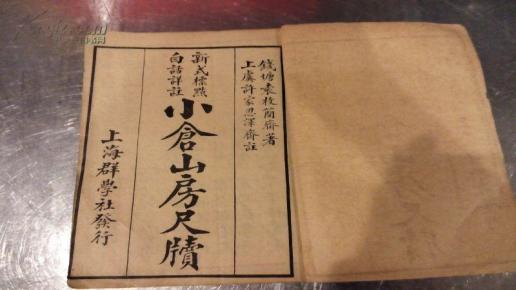 錢塘袁枚簡齋著
上虞許家恩澤齋註
新式標點
白話詳註
小倉山房尺牘
上海群學社發行